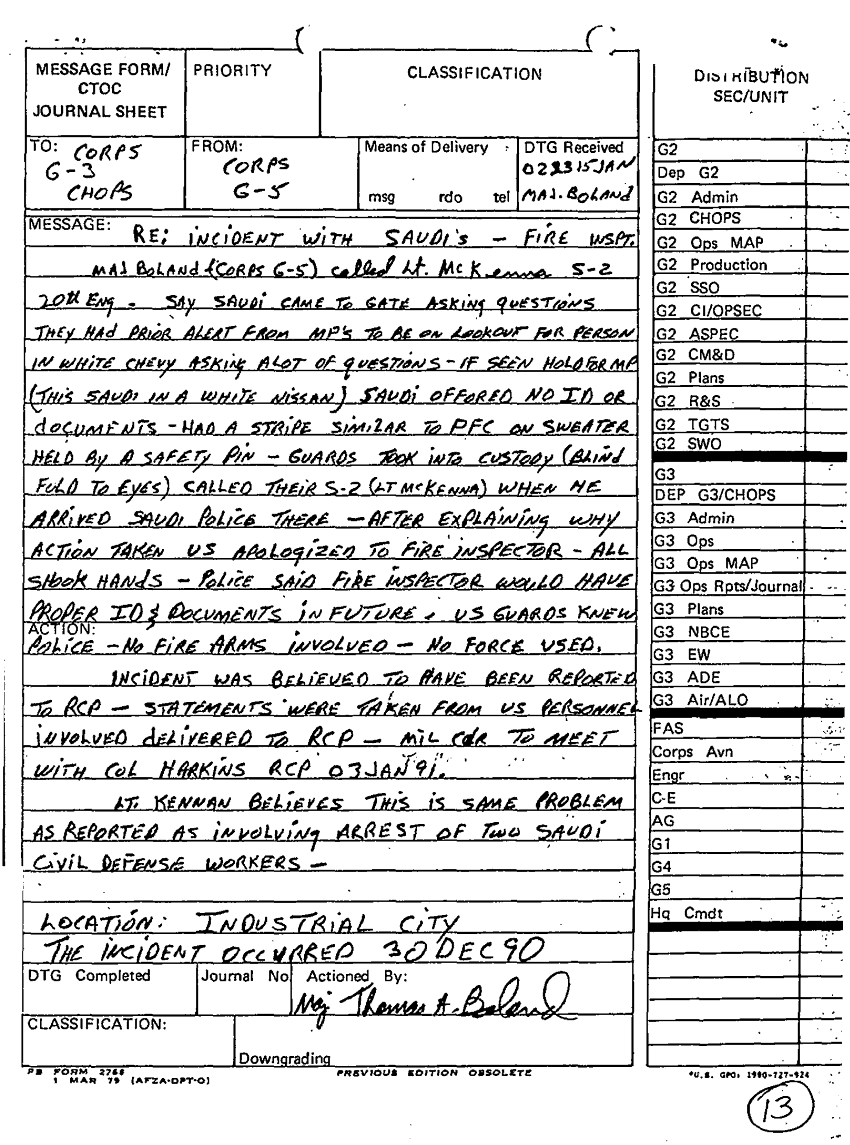 MESSAGE FORM/
CTOC
JOURNAL SHEET
PRIORITY
CLASSIFICATION
TO: CORPS
G-3
CHOPS
FROM:
CORPS
G-5
Means of Delivery :
msg rdo tel
DTG Received
MAJ. BOLAND
MESSAGE: RE: INCIDENT WITH SAUDI'S - FIRE INSPT.
MAJ BOLAND (CORPS G-5) called Lt. McKenna S-2
20th ENG - SAY SAUDI CAME TO GATE ASKING QUESTIONS
THEY HAD PRIOR ALERT FROM MP'S TO BE ON LOOKOUT FOR PERSON
IN WHITE CHEVY ASKING ALOT OF QUESTIONS - IF SEEN HOLD FOR MP
(THIS SAUDI IN A WHITE NISSAN) SAUDI OFFORED NO ID OR
DOCUMENTS - HAD A STRIPE SIMILAR TO PFC ON SWEATER
HELD BY A SAFETY PIN - GUARDS TOOK INTO CUSTODY (BLIND
FOLD TO EYES) CALLED THEIR S-2 (LT MCKENNA) WHEN HE
ARRIVED SAUDI POLICE THERE - AFTER EXPLAINING WHY
ACTION TAKEN US APOLOGIZED TO FIRE INSPECTOR - ALL
SHOOK HANDS - POLICE SAID FIRE INSPECTOR WOULD HAVE
PROPER ID & DOCUMENTS IN FUTURE. US GUARDS KNEW
ACTION:
POLICE - NO FIRE ARMS INVOLVED - NO FORCE USED.
INCIDENT WAS BELIEVED TO HAVE BEEN REPORTED
TO RCP - STATEMENTS WERE TAKEN FROM US PERSONNEL
INVOLVED DELIVERED TO RCP - MIL CDR TO MEET
WITH COL HARKINS RCP 03JAN91.
LT. KENNAN BELIEVES THIS IS SAME PROBLEM
AS REPORTED AS INVOLVING ARREST OF TWO SAUDI
CIVIL DEFENSE WORKERS -
LOCATION: INDUSTRIAL CITY
THE INCIDENT OCCURRED 30 DEC 90
DTG Completed
Journal No
Actioned By:
Maj Thomas A. Boland
CLASSIFICATION:
Downgrading
FORM 2768
1 MAR 79 (AFZA-DPT-O)
PREVIOUS EDITION OBSOLETE
DISTRIBUTION
SEC/UNIT
G2
Dep G2
G2 Admin
G2 CHOPS
G2 Ops MAP
G2 Production
G2 SSO
G2 CI/OPSEC
G2 ASPEC
G2 CM&D
G2 Plans
G2 R&S
G2 TGTS
G2 SWO
G3
DEP G3/CHOPS
G3 Admin
G3 Ops
G3 Ops MAP
G3 Ops Rpts/Journal
G3 Plans
G3 NBCE
G3 EW
G3 ADE
G3 Air/ALO
FAS
Corps Avn
Engr
C-E
AG
G1
G4
G5
Hq Cmdt
*U.S. GPO: 1990-727-924
13